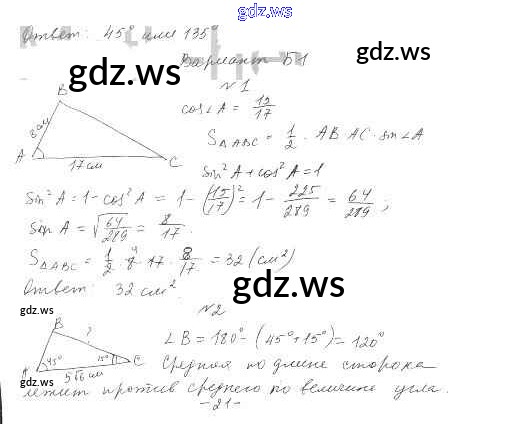 gdz.ws
Ответ: 45° или 135°
gdz.ws
Вариант Б1
gdz.ws
№1
B
8 см
A
17 см
C
cos∠A = 15/17
S△ABC = 1/2 · AB · AC · sin∠A
sin²A + cos²A = 1
sin²A = 1 - cos²A = 1 - (15/17)² = 1 - 225/289 = 64/289;
sin A = √64/289 = 8/17.
S△ABC = 1/2 · 8 · 17 · 8/17 = 32 (см²)
Ответ: 32 см².
gdz.ws
gdz.ws
№2
B
?
A
45°
15°
C
5√6 см
∠B = 180° - (45° + 15°) = 120°
Средняя по длине сторона
gdz.ws
gdz.ws
лежит против среднего по величине угла.
- 21 -